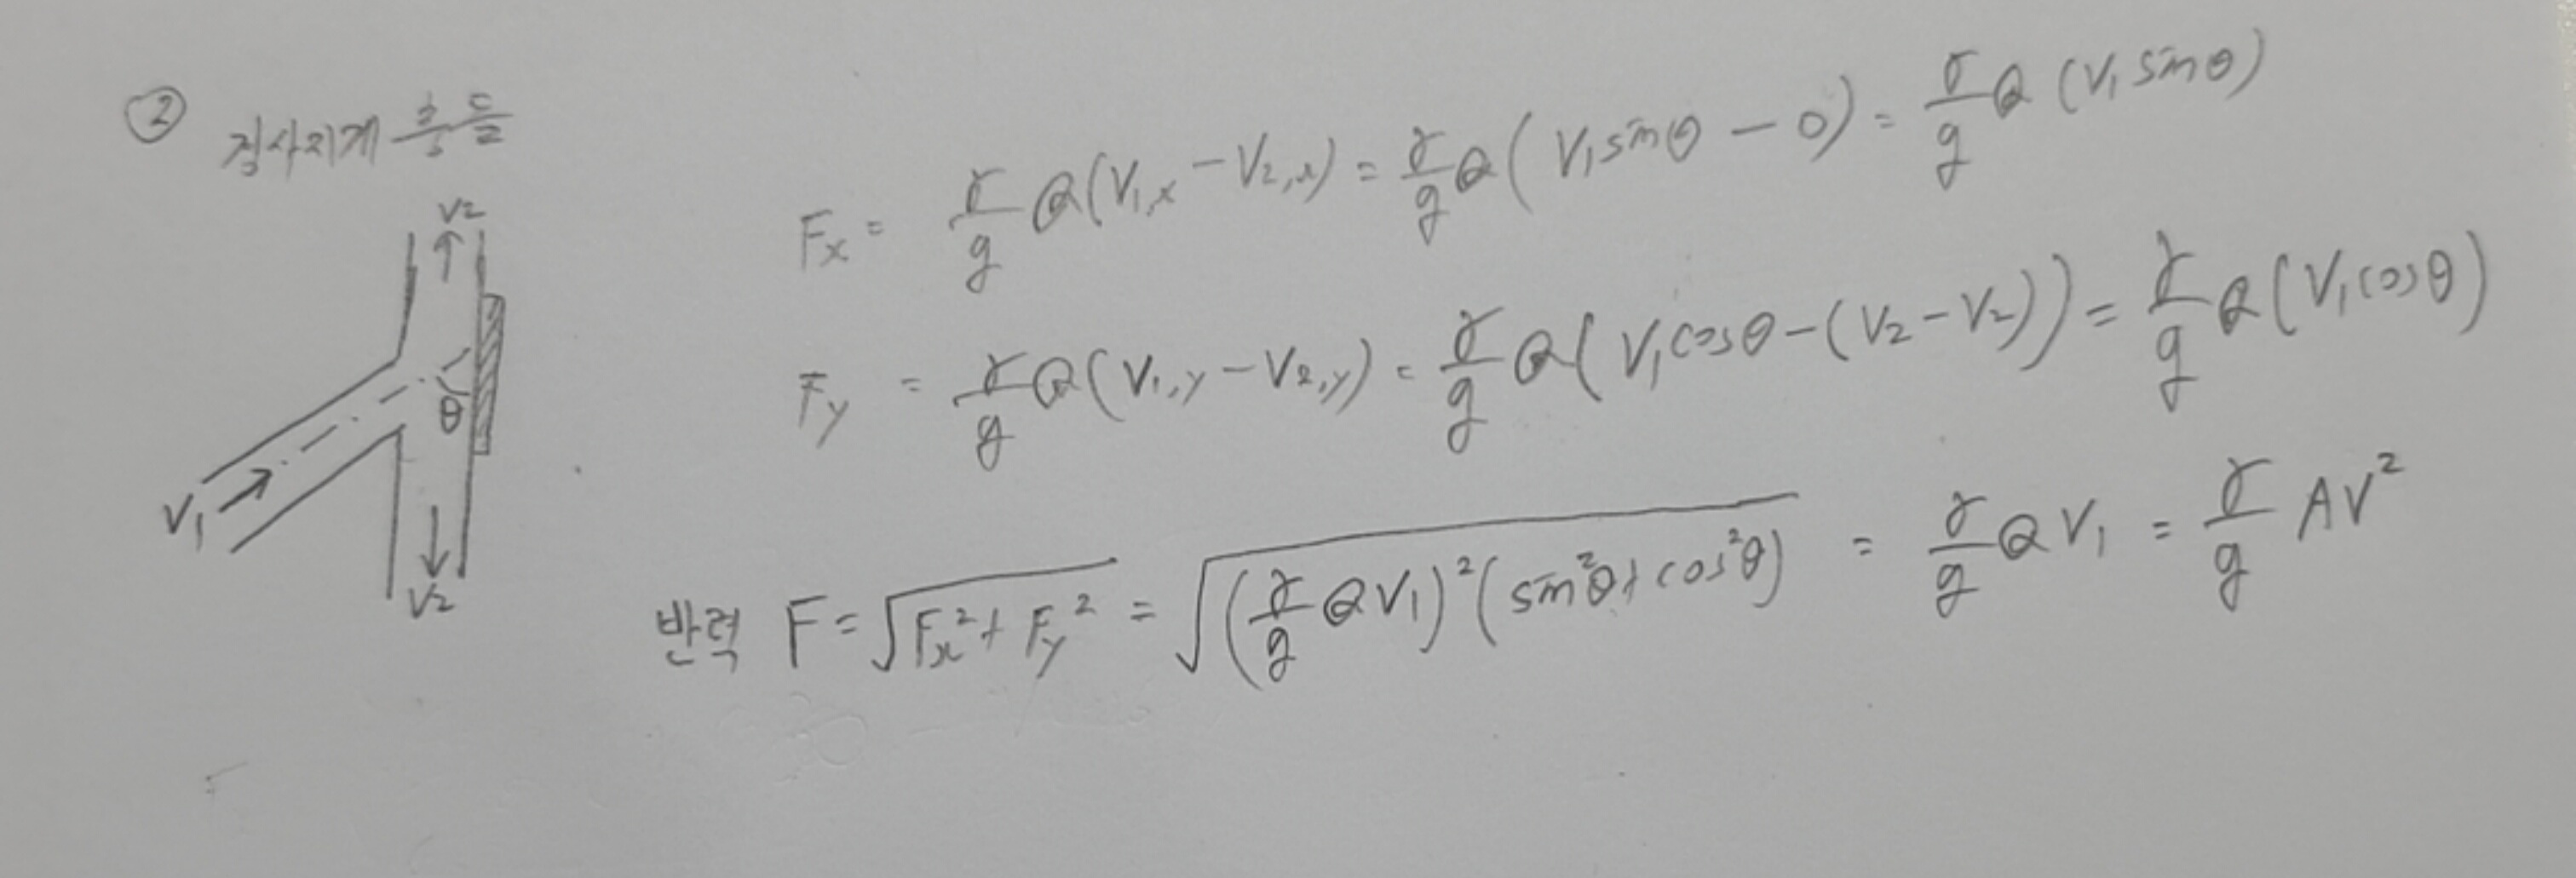 ② 경사지게 충돌
Fx = γ/g Q(V1,x - V2,x) = γ/g Q(V1 sinθ - 0) = γ/g Q (V1 sinθ)
V2
Fy = γ/g Q(V1,y - V2,y) = γ/g Q(V1 cosθ - (V2 - V2)) = γ/g Q(V1 cosθ)
θ
V1
V2
반력 F = √(Fx² + Fy²) = √((γ/g QV1)² (sin²θ + cos²θ)) = γ/g QV1 = γ/g AV²